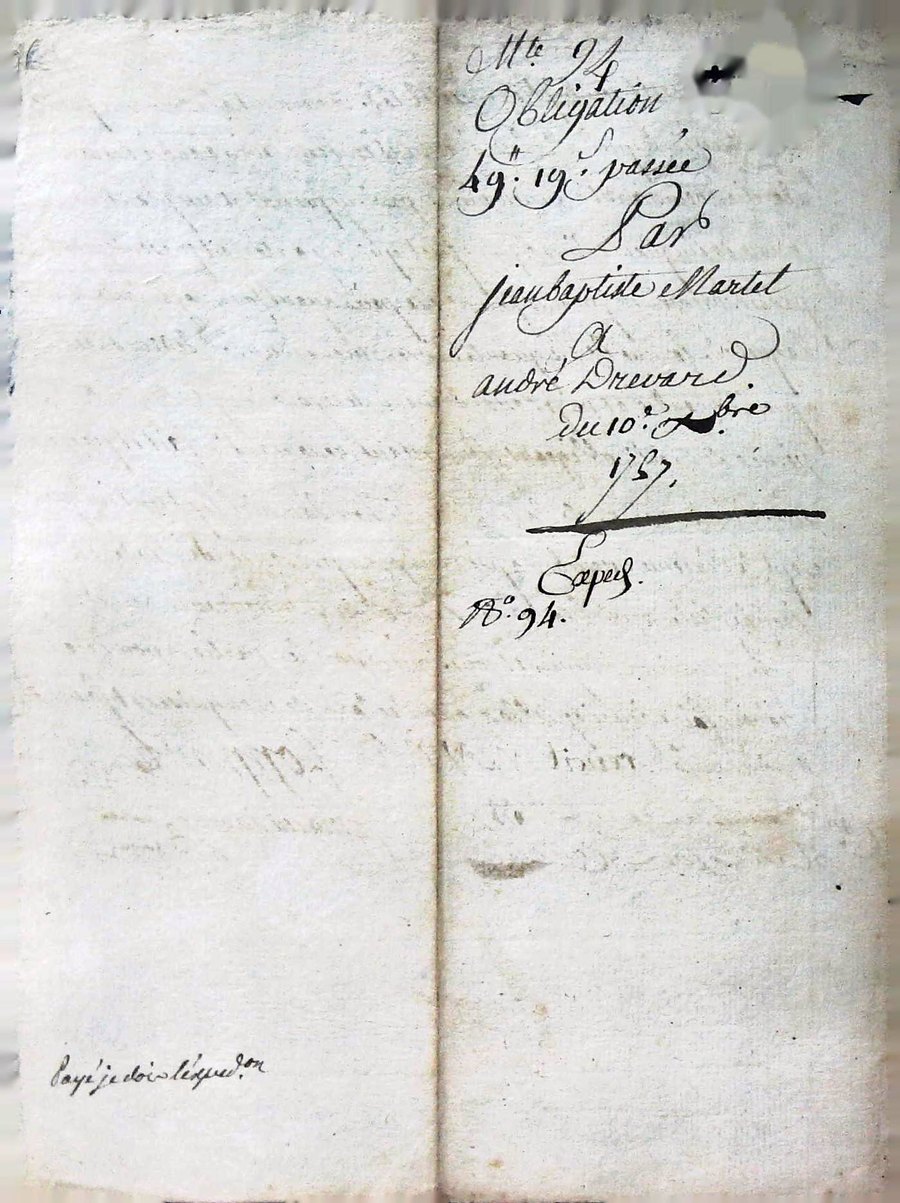 Mte 94
Obligation
49# 19s passée
Par
jean baptiste Martel
A
andré Drevard.
du 10e xbre
1757.
Exped.
No. 94.
Payé je dois l'éxped.on